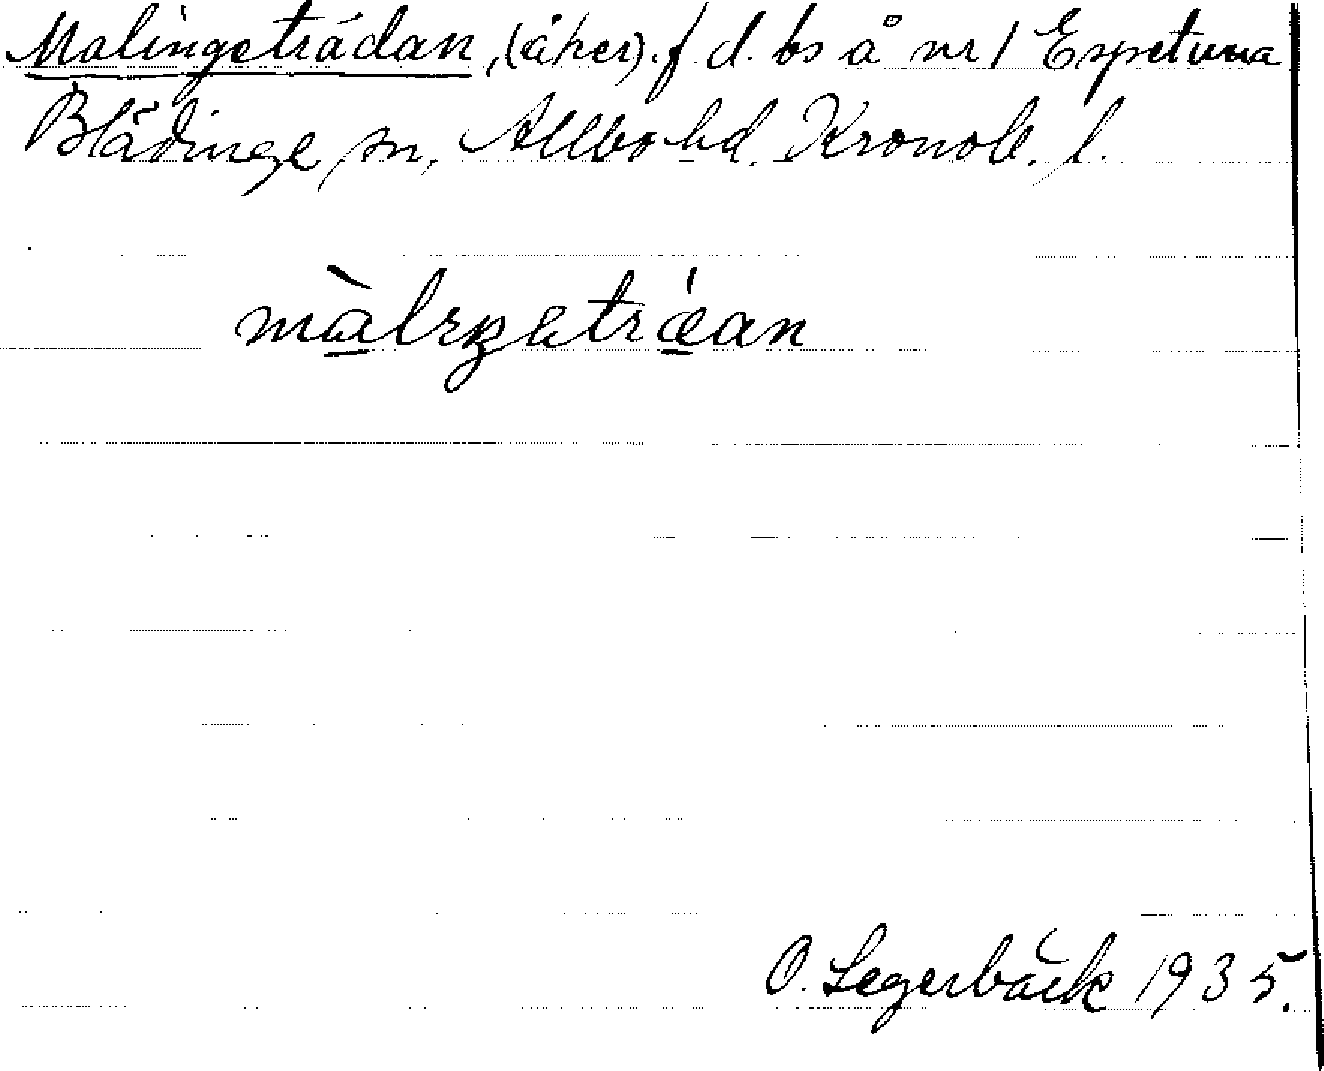 Malingeträdan, (åker). f d. bs å nr 1 Espetuna
Blädinge sn, Allbo hd. Kronob. l.
O. Segerbäck 1935.